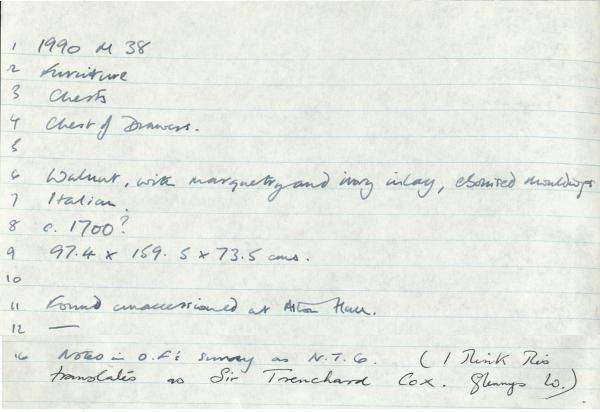 1 1990 M 38
2 Furniture
3 Chests
4 Chest of Drawers.
5
6 Walnut, with marquetry and ivory inlay, ebonised mouldings
7 Italian.
8 c. 1700?
9 97.4 x 159.5 x 73.5 cms.
10
11 Found unaccessioned at Aston Hall.
12 —
16 Noted in O.F.'s survey as N.T.G. (I think this
translates as Sir Trenchard Cox. Glennys W.)